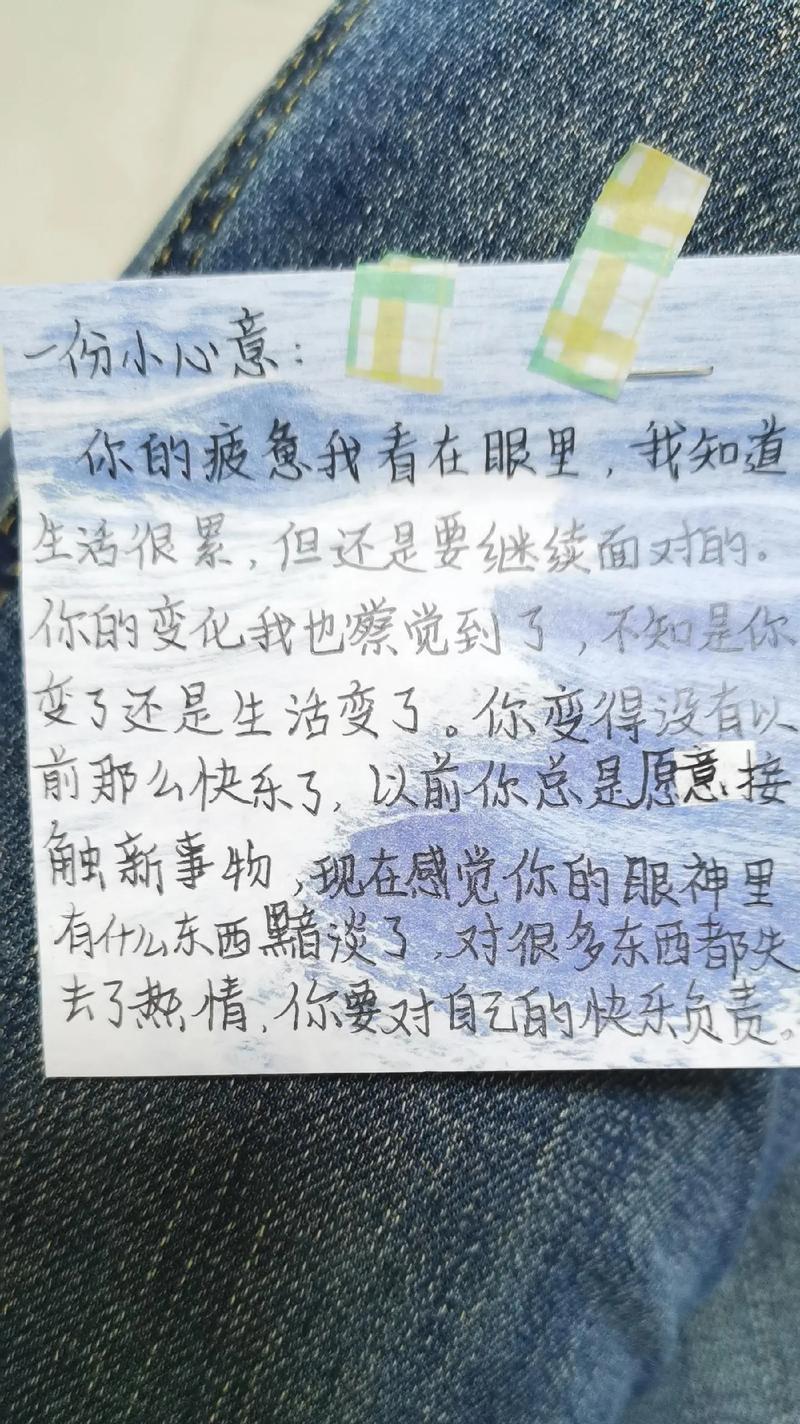 一份小心意：
你的疲惫我看在眼里，我知道
生活很累，但还是要继续面对的。
你的变化我也察觉到了，不知是你
变了还是生活变了。你变得没有以
前那么快乐了，以前你总是愿意接
触新事物，现在感觉你的眼神里
有什么东西黯淡了，对很多东西都失
去了热情，你要对自己的快乐负责。